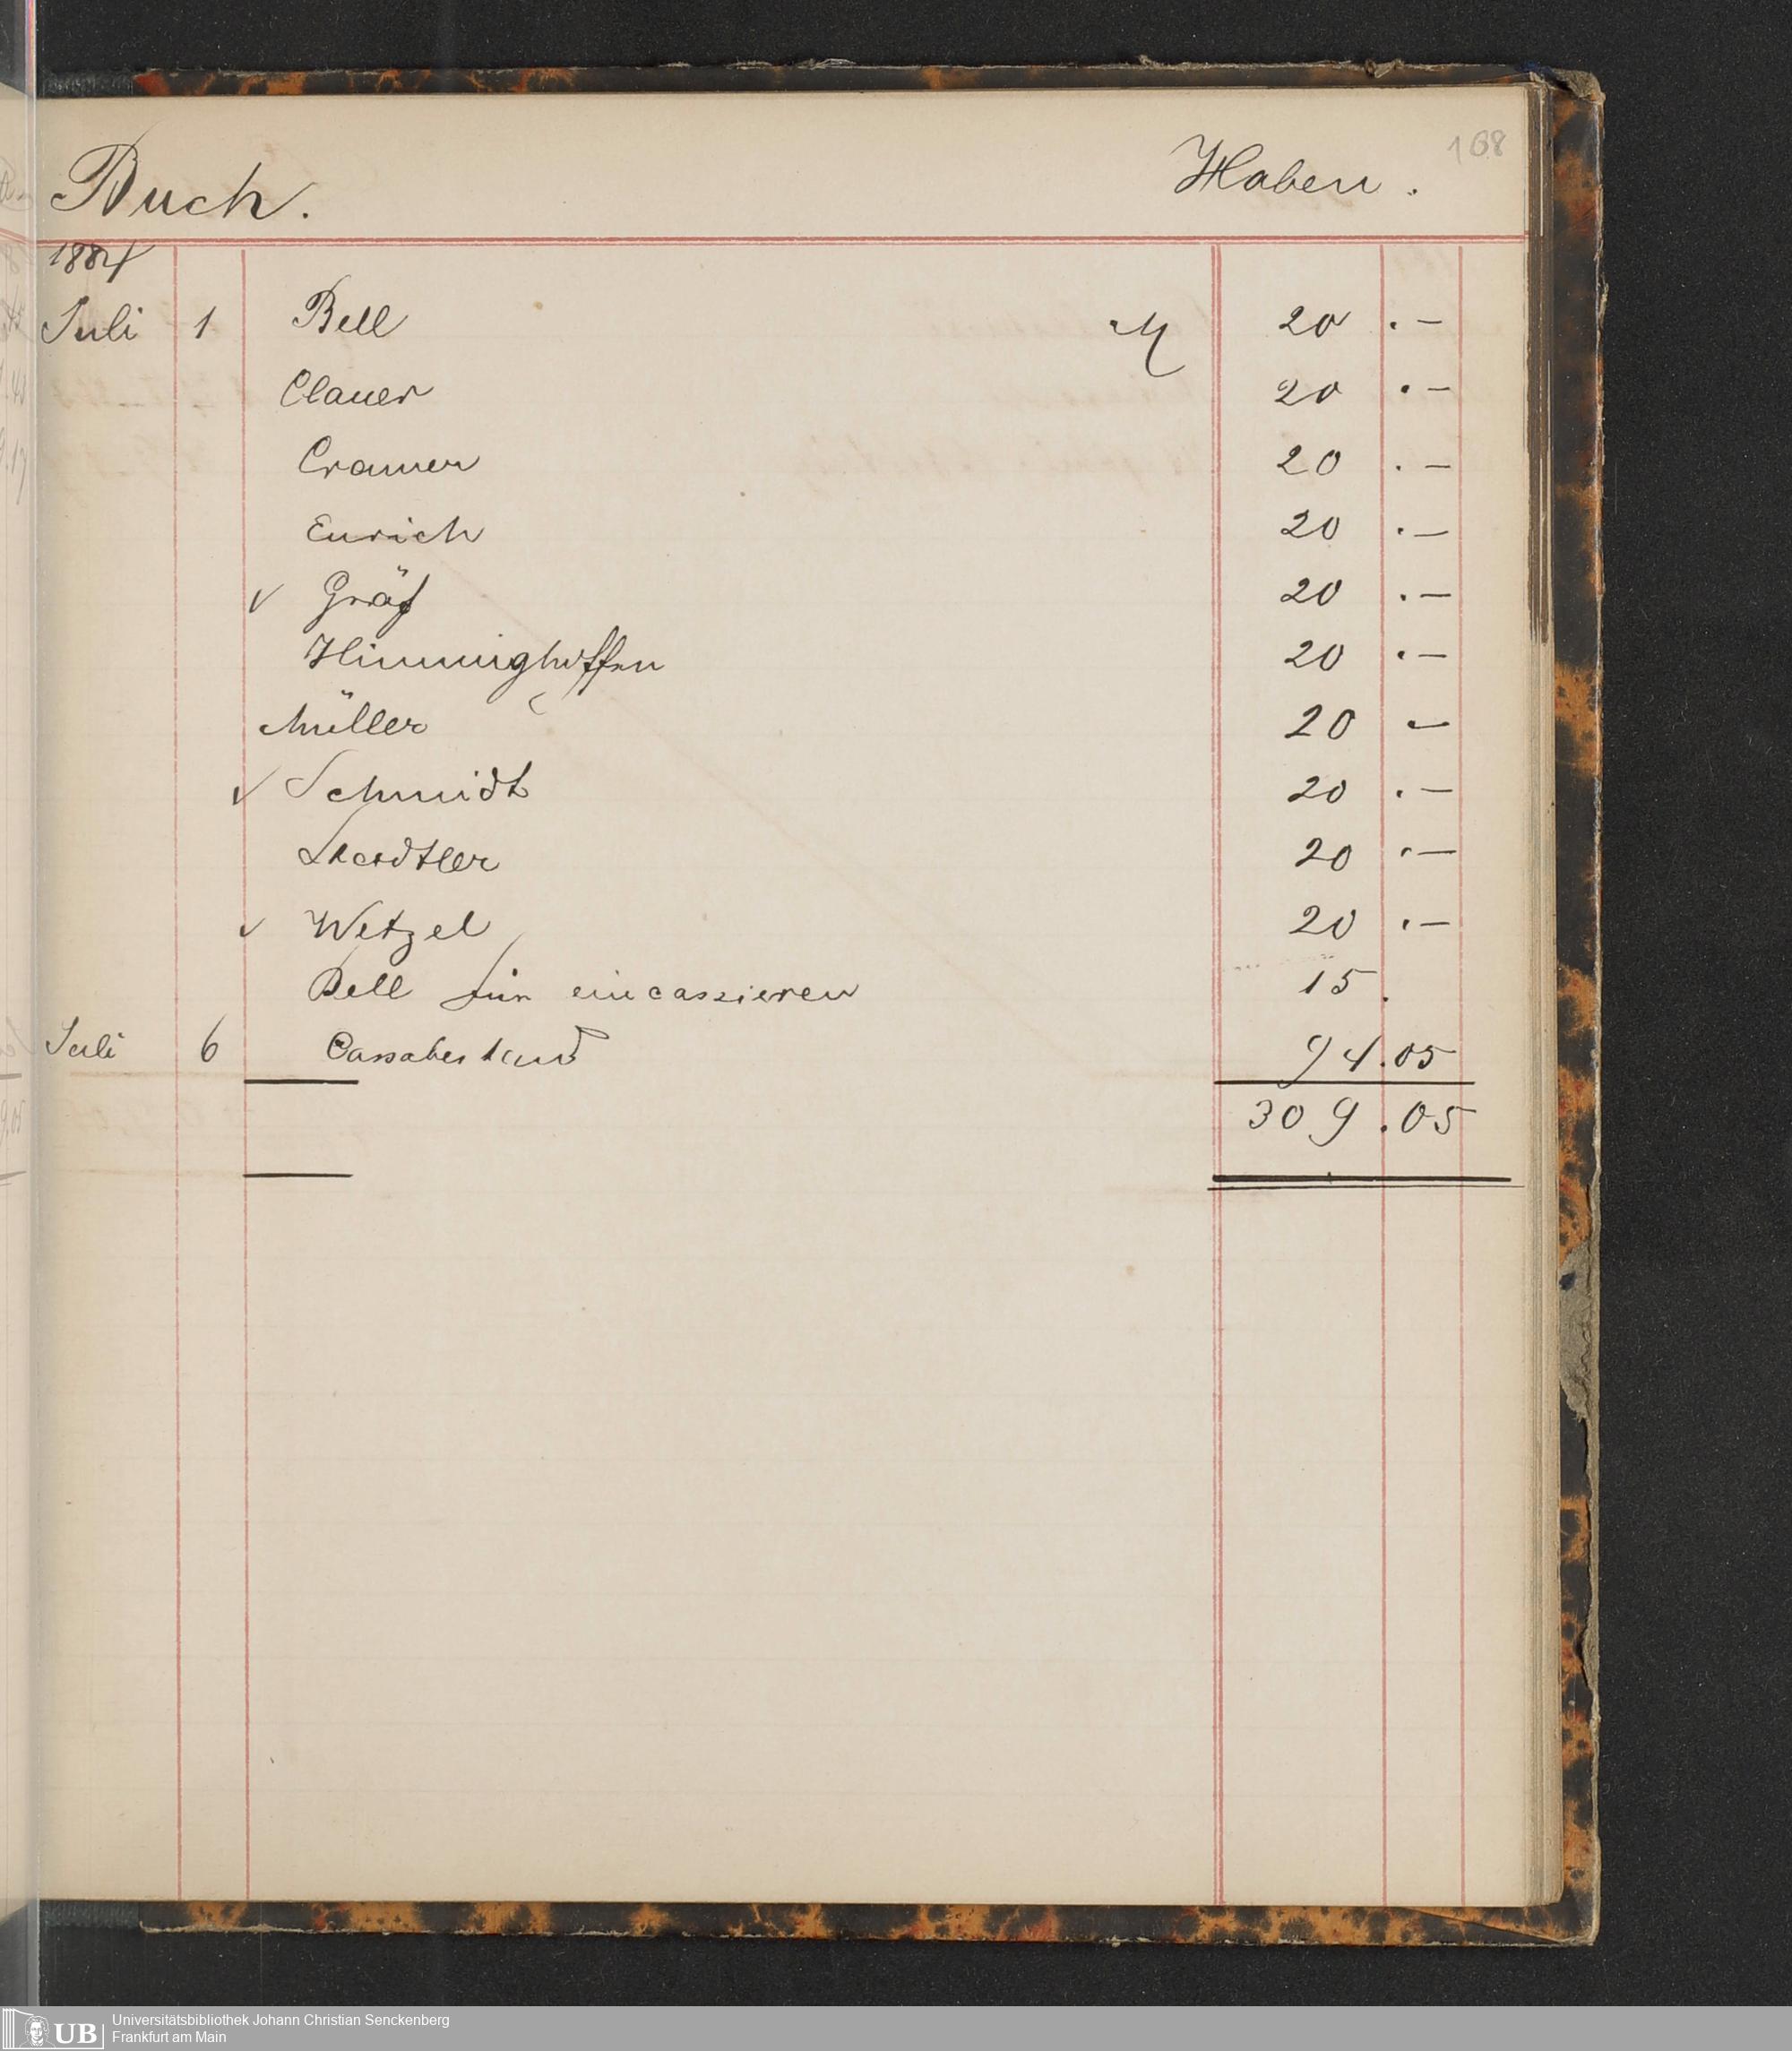 168
Buch. Haben.
1884
Juli 1 Bell M 20 . —
Clauer 20 . —
Cramer 20 . —
Eurich 20 . —
√ Gräf 20 . —
Himmighoffen 20 . —
Müller 20 . —
√ Schmidt 20 . —
Staedtler 20 . —
√ Wetzel 20 . —
Bell für eincassieren 15 .
Juli 6 Cassabestand 94.05
309.05
UB Universitätsbibliothek Johann Christian Senckenberg
Frankfurt am Main